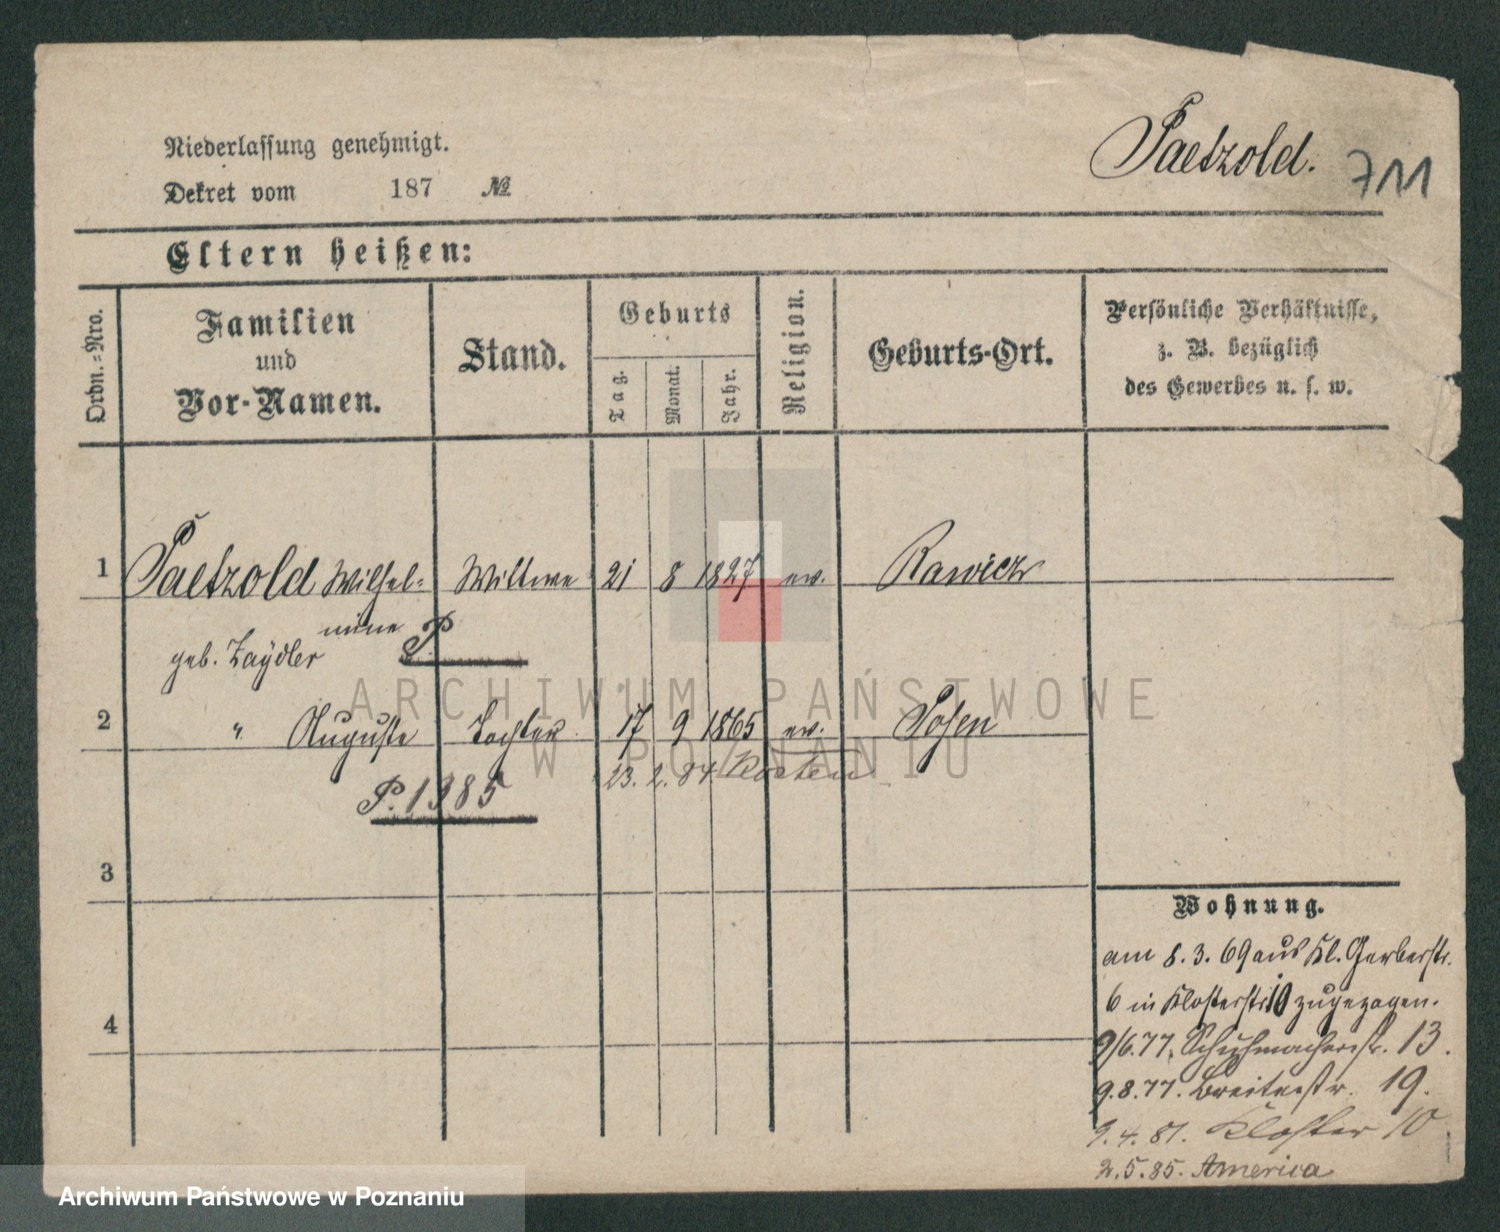 Paetzold.
711
Niederlassung genehmigt.
Dekret vom 187 №
Eltern heißen:
Ordn.-Nro.
Familien und Vor-Namen.
Stand.
Geburts
Tag.
Monat.
Jahr.
Religion.
Geburts-Ort.
Persönliche Verhältnisse,
z. B. bezüglich
des Gewerbes u. s. w.
1 Paetzold Wilhel= Wittwe 21 8 1827 ev. Rawicz
mine P
geb. Zaÿdler
2 " Auguste Tochter 17 9 1865 ev. Posen
23. 2. 84 Kosten
P. 1885
3
4
Wohnung.
am 8. 3. 69 aus Kl. Gerberstr.
6 in Klosterstr 10 zugezogen.
9/6.77. Schuhmacherstr. 13.
9.8.77. Breitestr. 19.
9.4.81. Kloster 10
2.5.85. America
ARCHIWUM PAŃSTWOWE
W POZNANIU
Archiwum Państwowe w Poznaniu